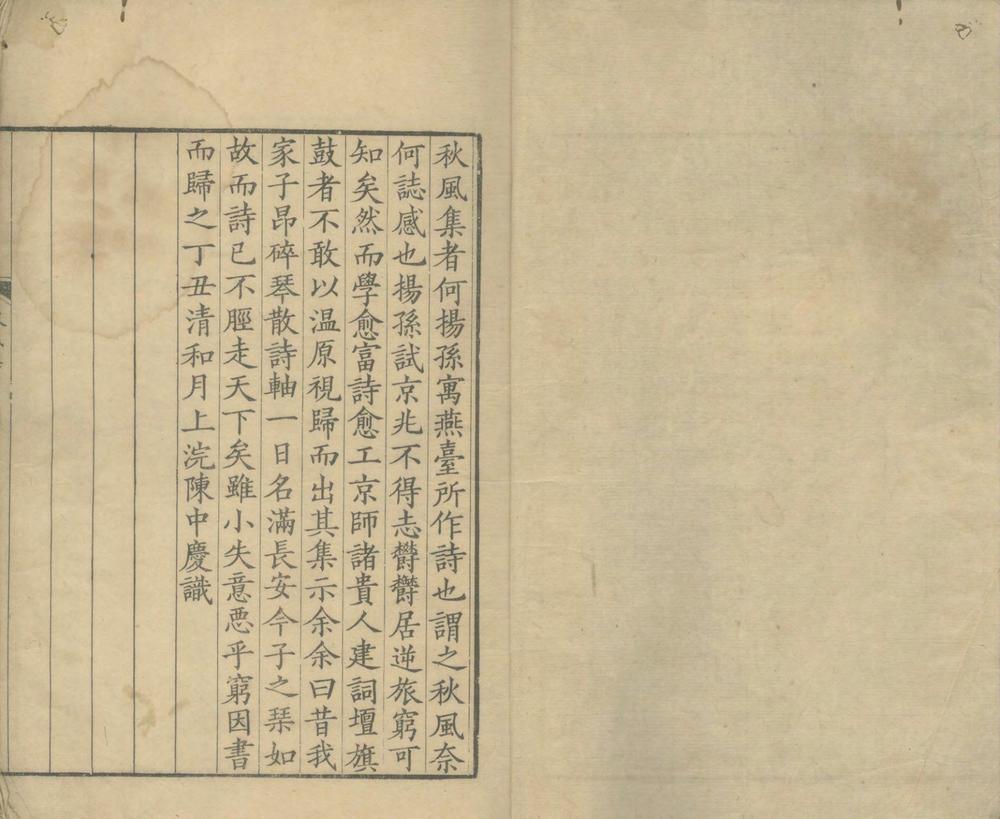 秋風集者何揚孫寓燕臺所作詩也謂之秋風奈
何誌感也揚孫試京兆不得志欝欝居逆旅窮可
知矣然而學愈富詩愈工京師諸貴人建詞壇旗
鼓者不敢以温原視歸而出其集示余余曰昔我
家子昂碎琴散詩軸一日名滿長安今子之琹如
故而詩已不脛走天下矣雖小失意惡乎窮因書
而歸之丁丑清和月上浣陳中慶識